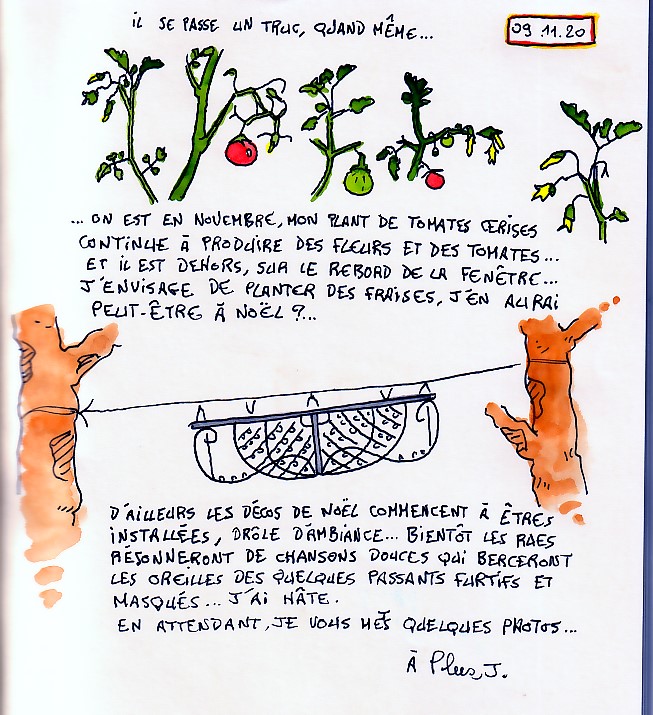 IL SE PASSE UN TRUC, QUAND MÊME...
09.11.20
... ON EST EN NOVEMBRE, MON PLANT DE TOMATES CERISES
CONTINUE À PRODUIRE DES FLEURS ET DES TOMATES...
ET IL EST DEHORS, SUR LE REBORD DE LA FENÊTRE...
J'ENVISAGE DE PLANTER DES FRAISES, J'EN AURAI
PEUT-ÊTRE À NOËL ?...
D'AILLEURS LES DÉCOS DE NOËL COMMENCENT À ÊTRES
INSTALLÉES, DRÔLE D'AMBIANCE... BIENTÔT LES RUES
RÉSONNERONT DE CHANSONS DOUCES QUI BERCERONT
LES OREILLES DES QUELQUES PASSANTS FURTIFS ET
MASQUÉS... J'AI HÂTE.
EN ATTENDANT, JE VOUS METS QUELQUES PHOTOS...
À Plus, J.